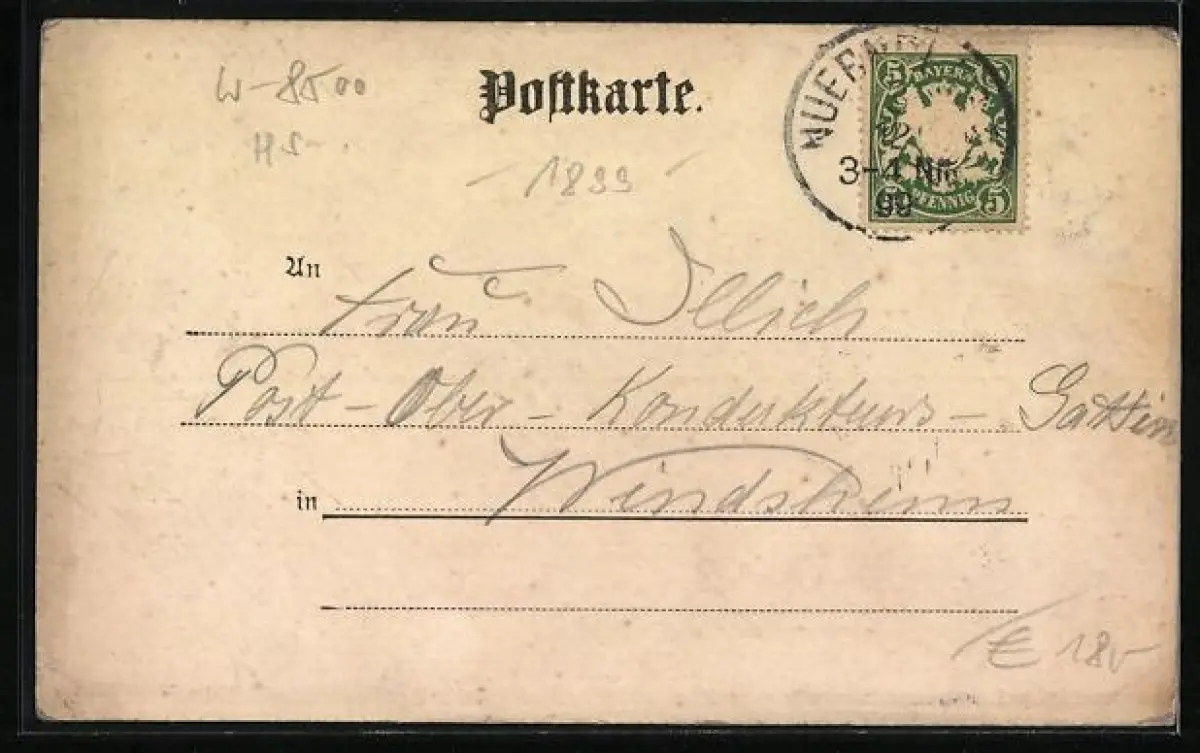 W-8500
HS-
Postkarte.
- 1899 -
NUERNB
3-4 Nm
99
5 BAYERN
PFENNIG 5
An Frau Illich
Post-Ober-Kondukteurs-Gattin
in Windsheim
€ 18,-